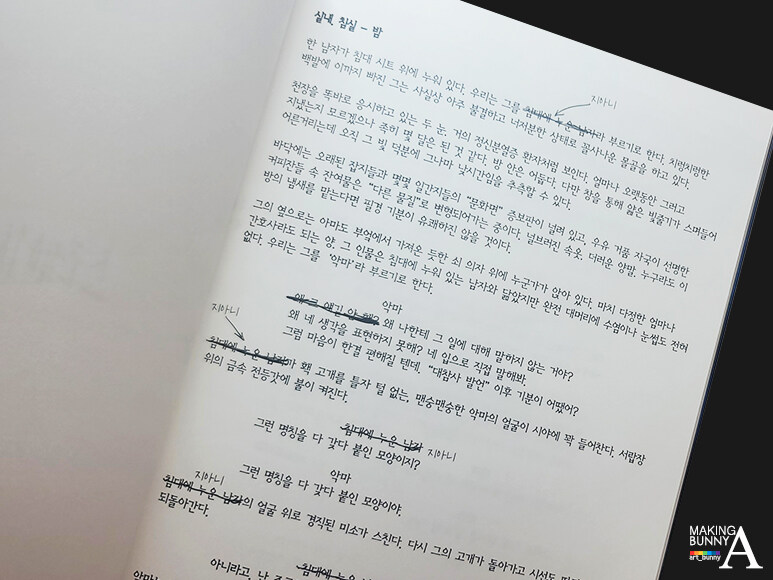 실내. 침실 - 밤
한 남자가 침대 시트 위에 누워 있다. 우리는 그를 침대에 누운 남자라 부르기로 한다. 치렁치렁한
지아니
백발에 이까지 빠진 그는 사실상 아주 불결하고 너저분한 상태로 꼴사나운 몰골을 하고 있다.
천장을 똑바로 응시하고 있는 두 눈. 거의 정신분열증 환자처럼 보인다. 얼마나 오랫동안 그러고
지냈는지 모르겠으나 족히 몇 달은 된 것 같다. 방 안은 어둡다. 다만 창을 통해 얇은 빛줄기가 스며들어
어른거리는데 오직 그 빛 덕분에 그나마 낮시간임을 추측할 수 있다.
바닥에는 오래된 잡지들과 몇몇 일간지들의 "문화면" 증보판이 널려 있고, 우유 거품 자국이 선명한
커피잔들 속 잔여물은 "다른 물질"로 변형되어가는 중이다. 널브러진 속옷. 더러운 양말. 누구라도 이
방의 냄새를 맡는다면 필경 기분이 유쾌하진 않을 것이다.
그의 옆으로는 아마도 부엌에서 가져온 듯한 쇠 의자 위에 누군가가 앉아 있다. 마치 다정한 엄마나
간호사라도 되는 양. 그 인물은 침대에 누워 있는 남자와 닮았지만 완전 대머리에 수염이나 눈썹도 전혀
없다. 우리는 그를 '악마'라 부르기로 한다.
악마
왜 그 얘긴 안 해? 왜 나한테 그 일에 대해 말하지 않는 거야?
왜 네 생각을 표현하지 못해? 네 입으로 직접 말해봐.
그럼 마음이 한결 편해질 텐데. "대참사 발언" 이후 기분이 어땠어?
지아니
침대에 누운 남자가 홱 고개를 틀자 털 없는, 맨숭맨숭한 악마의 얼굴이 시야에 꽉 들어찬다. 서랍장
위의 금속 전등갓에 불이 켜진다.
침대에 누운 남자 지아니
그런 명칭을 다 갖다 붙인 모양이지?
악마
그런 명칭을 다 갖다 붙인 모양이야.
지아니
침대에 누운 남자의 얼굴 위로 경직된 미소가 스친다. 다시 그의 고개가 돌아가고 시선도
되돌아간다.
침대에 누운
아니라고, 난
악마는
MAKING
BUNNY
art_bunny
A